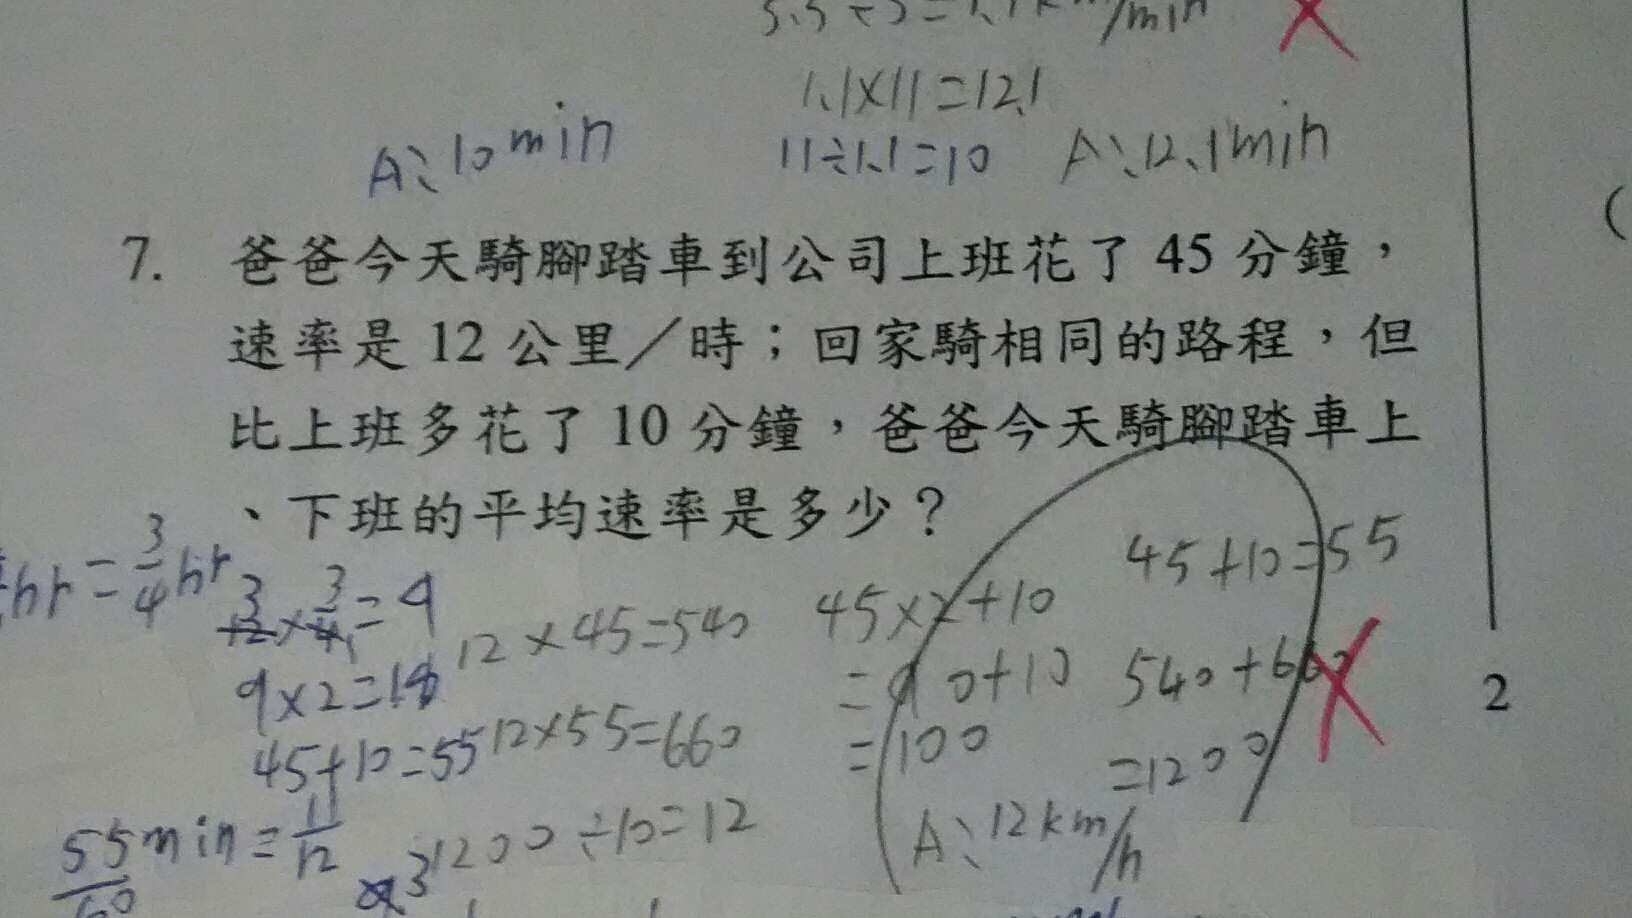 1.1×11=12.1
A:10min
11÷1.1=10 A:12.1min
7. 爸爸今天騎腳踏車到公司上班花了 45 分鐘,
速率是 12 公里／時；回家騎相同的路程，但
比上班多花了 10 分鐘，爸爸今天騎腳踏車上
、下班的平均速率是多少？
hr=3/4hr
12×3/4=9
9×2=18
45+10=55
55/60min=11/12
12×45=540
12×55=660
1200÷10=12
45×2+10
=90+10
=100
45+10=55
540+660
=1200
A:12km/h
2